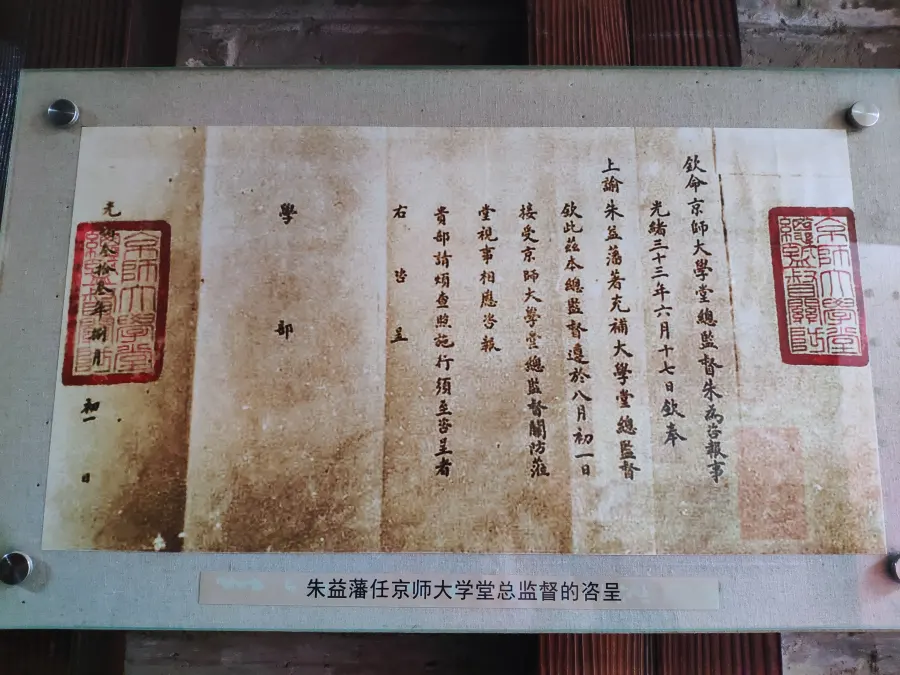 欽命京師大學堂總監督朱為咨報事
光緒三十三年六月十七日欽奉
上諭朱益藩著充補大學堂總監督
欽此茲本總監督遵於八月初一日
接受京師大學堂總監督關防蒞
堂視事相應咨報
貴部請煩查照施行須至咨呈者
右咨呈
學部
光緒叁拾叁年捌月初一日
京師大學堂
總監督關防
京師大學堂
總監督關防
朱益藩任京师大学堂总监督的咨呈